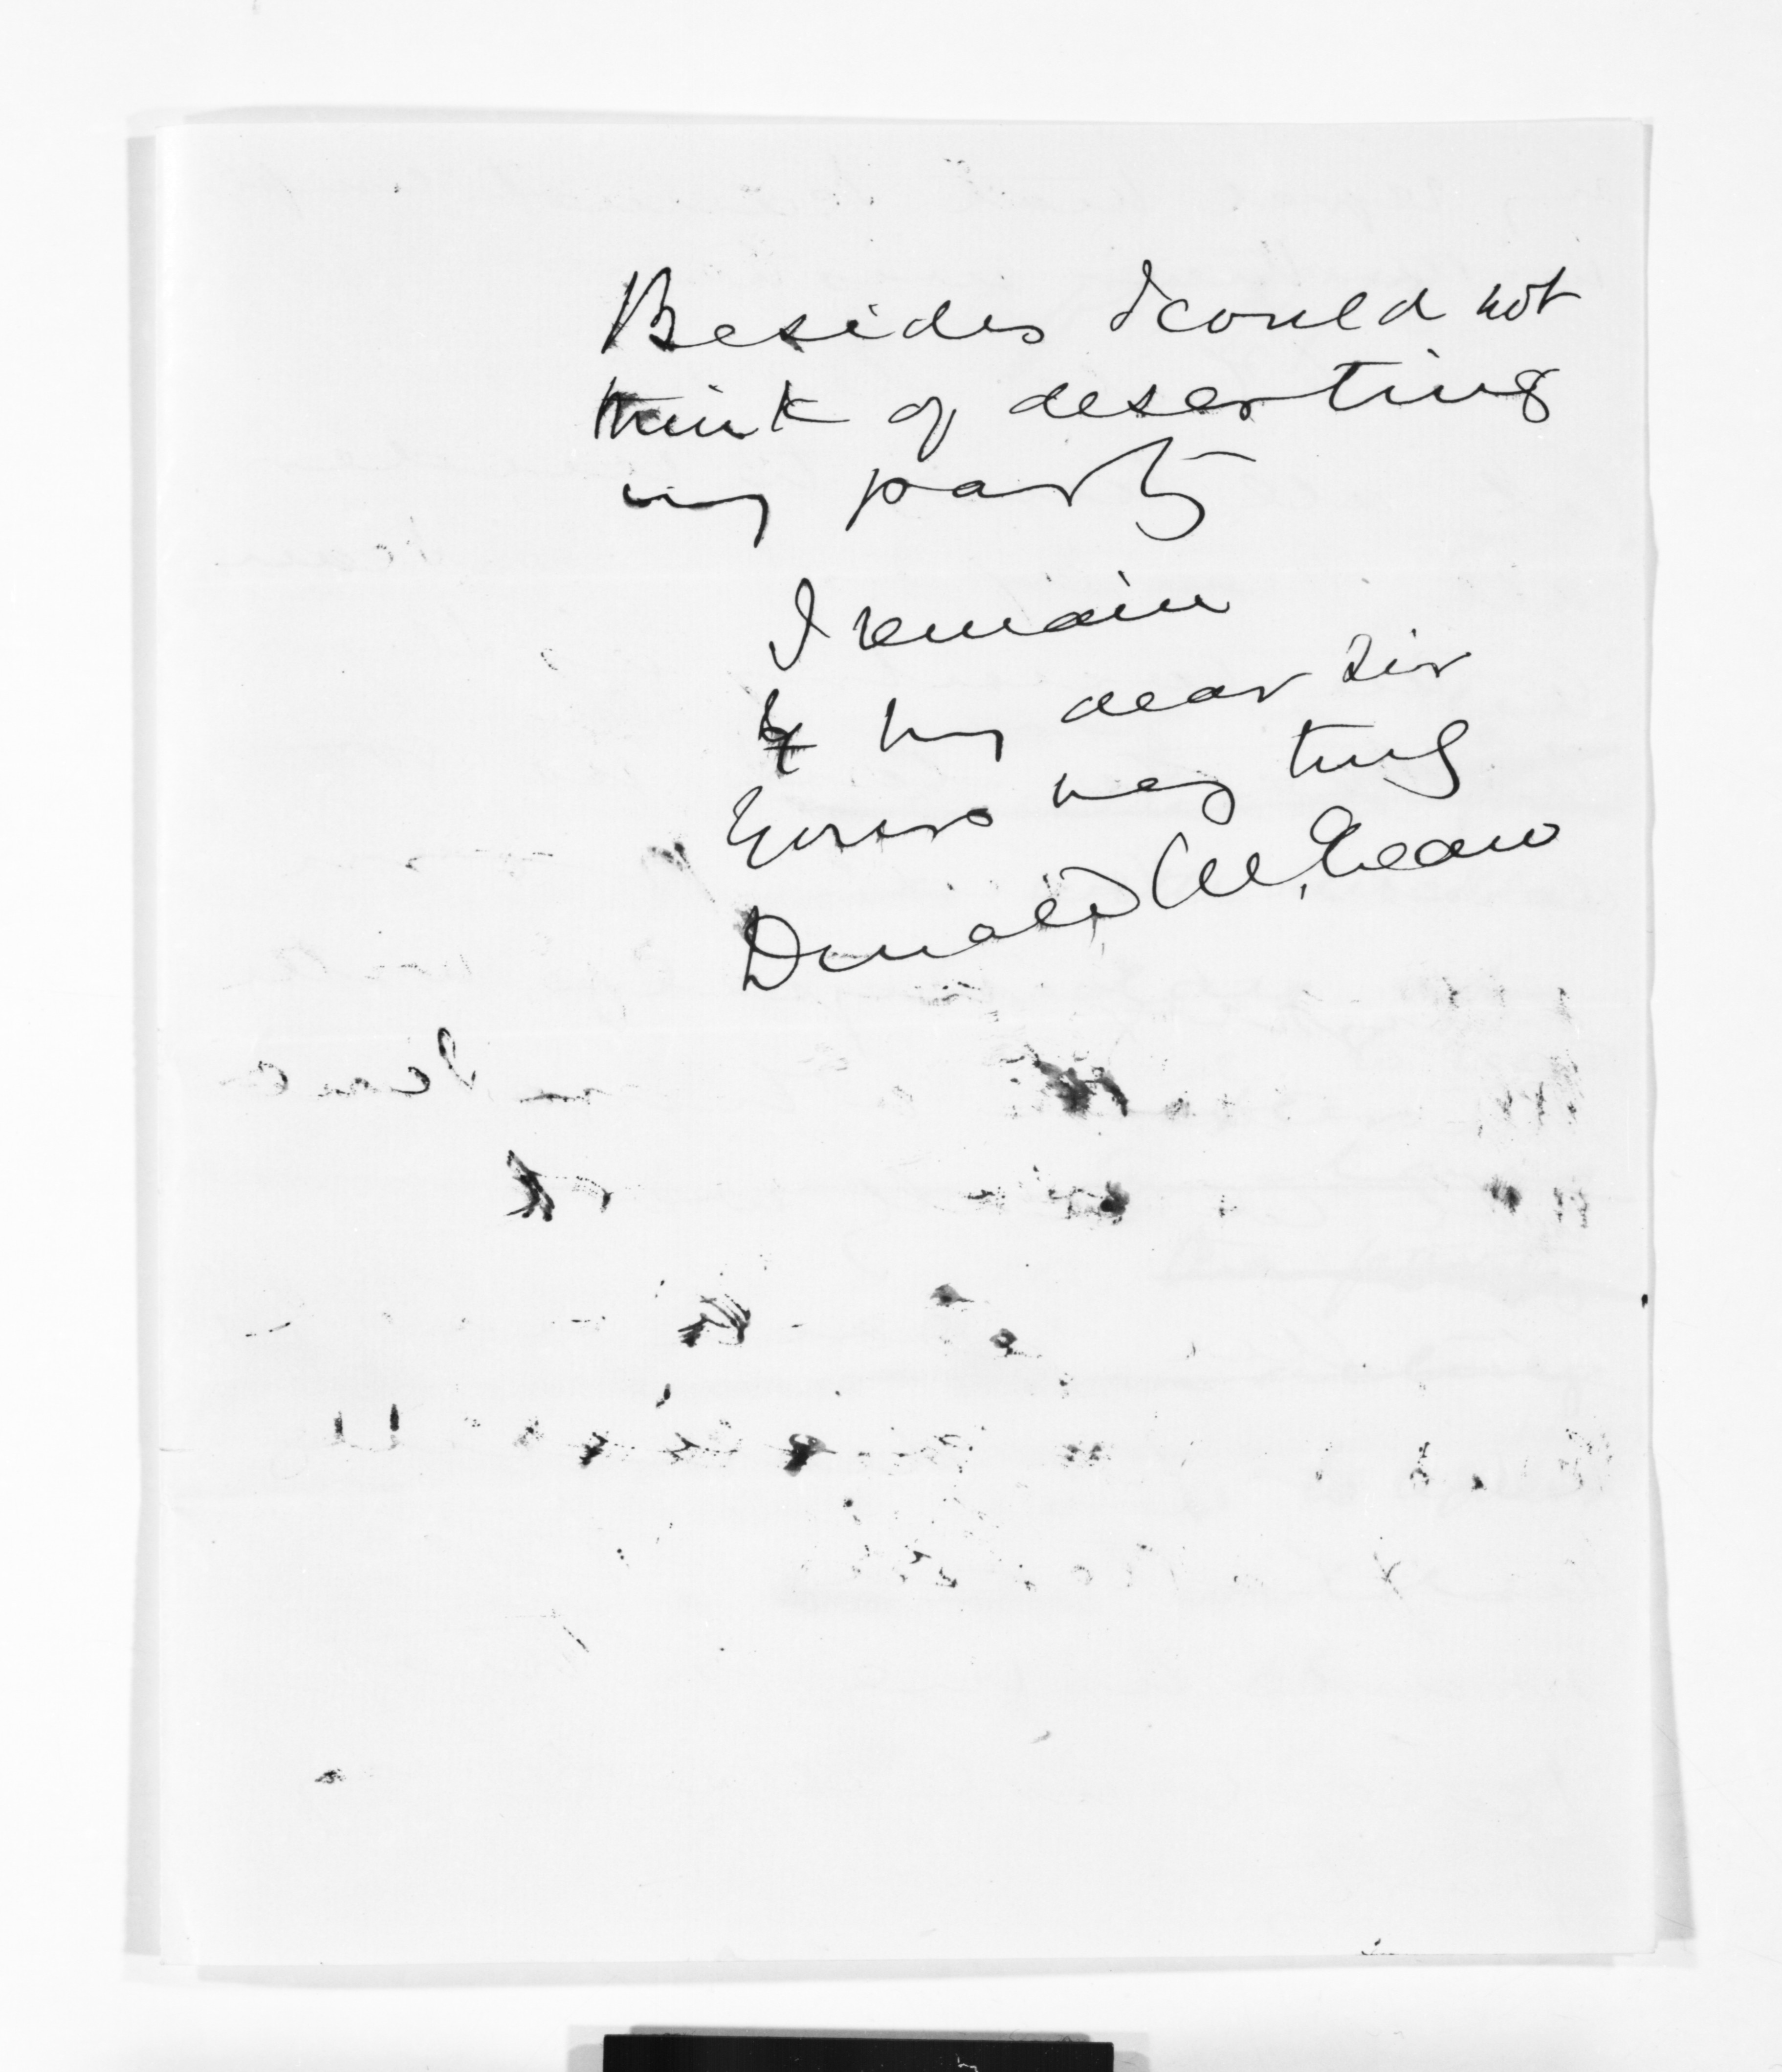 Besides I could not
think of deserting
my party
I remain
my dear Sir
Yours very truly
Donald McLean